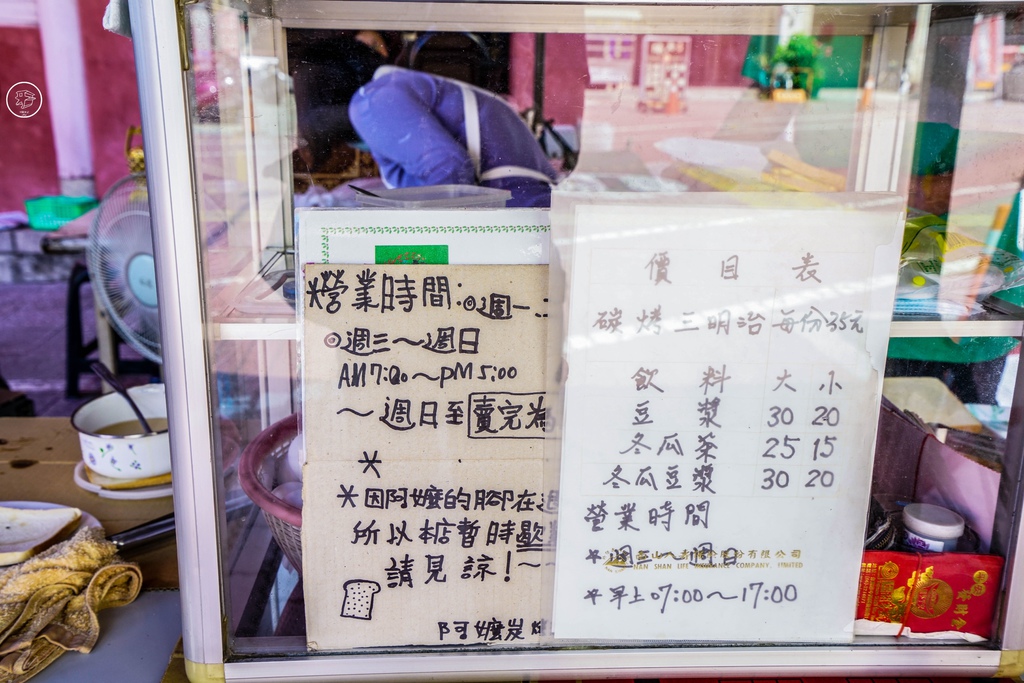 營業時間:◎週一
◎週三～週日
AM7:00～PM5:00
～週日至賣完為
*
*因阿嬤的腳在週
所以本店暫時歇
請見諒!～～
阿嬤炭烤
價目表
碳烤三明治 每份35元
飲料 大 小
豆漿 30 20
冬瓜茶 25 15
冬瓜豆漿 30 20
營業時間
*週三～週日
NAN SHAN LIFE INSURANCE COMPANY, LIMITED
*早上07:00～17:00